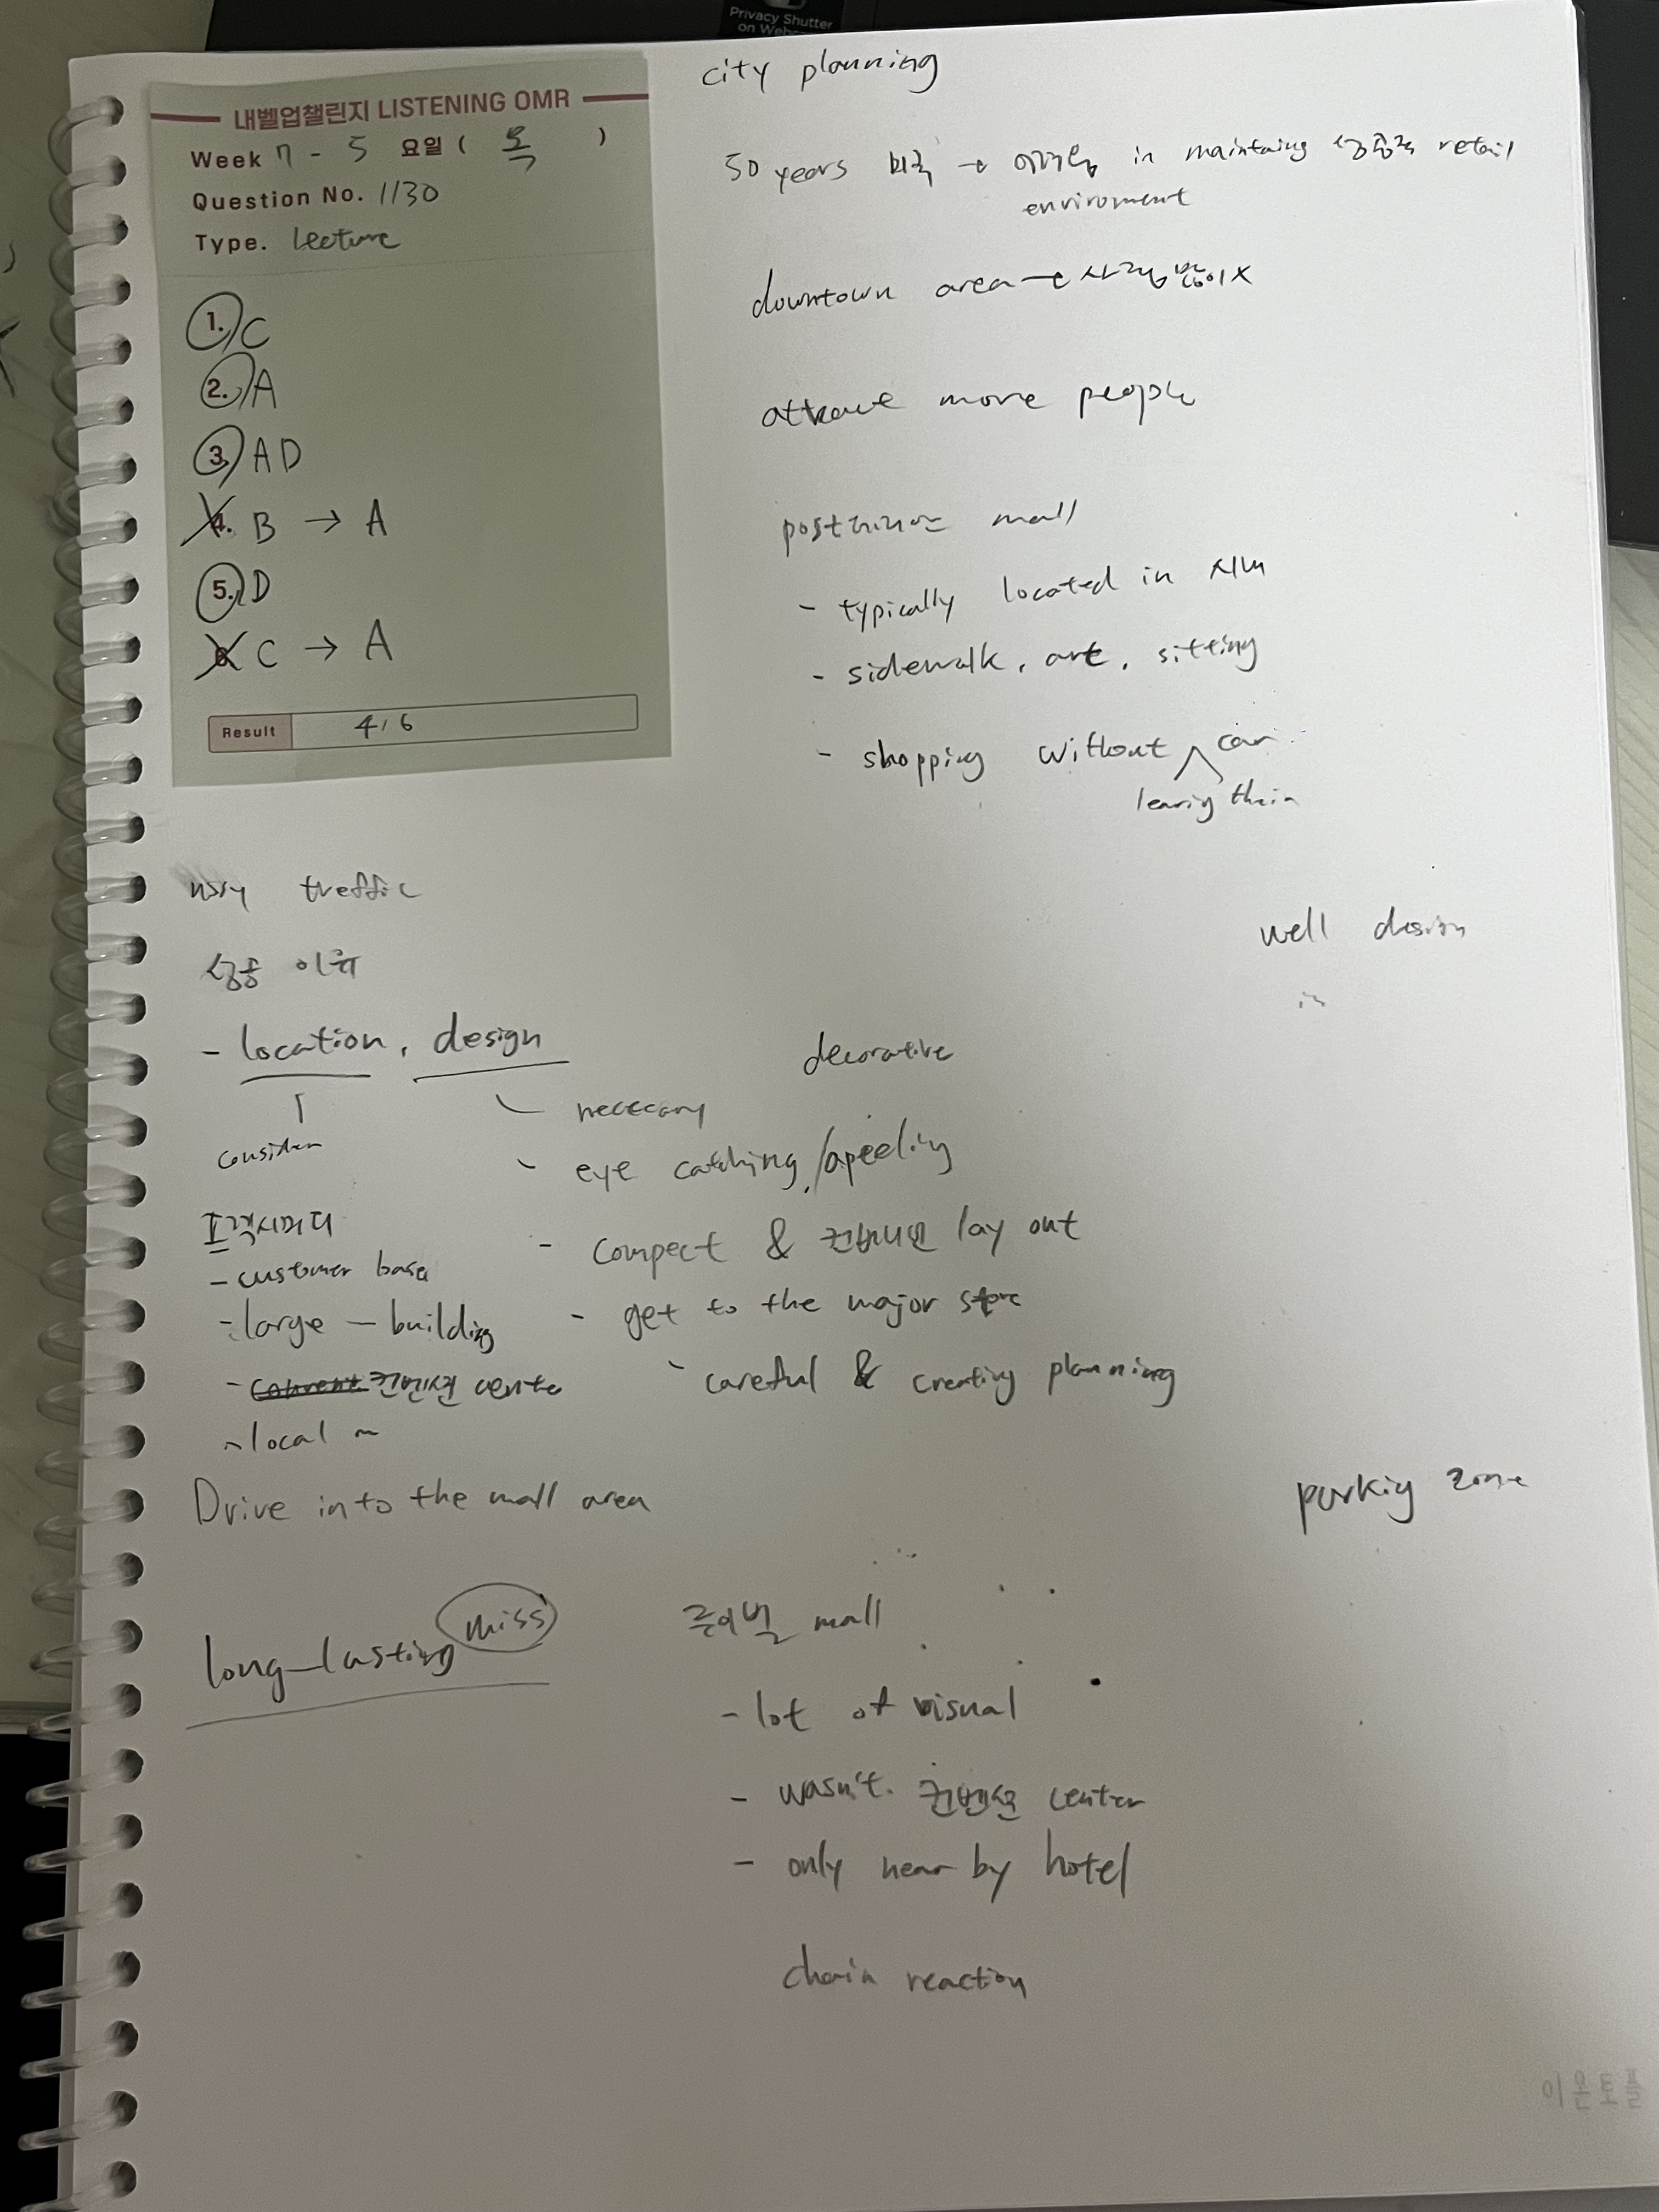 Privacy Shutter
on Webc
내벨업챌린지 LISTENING OMR
Week 7 - 5 요일 ( 목 )
Question No. 1130
Type. Lecture
1. C
2. A
3. A D
4. B → A
5. D
6. C → A
Result 4/6
city planning
50 years 미국 → 어려움 in maintaing 성공적 retail
enviroment
downtown area → 사람 많이 X
attract more people
mall
- typically located in 시내
- sidewalk, art, sitting
- shopping without car
their
traffic
성공 이유
- location, design
consider
프락시머티
- customer base
- large - building
- 컨벤션 cente
- local ~
decorative
neccecary
- eye catching/apeeling
- compect & 컨비니언 lay out
- get to the major store
- careful & creativ planning
well design
Drive into the mall area
parkig zone
long-lasting miss
루이빌 mall
- lot of visual
- wasn't 컨벤션 center
- only near by hotel
chain reaction
이온토플